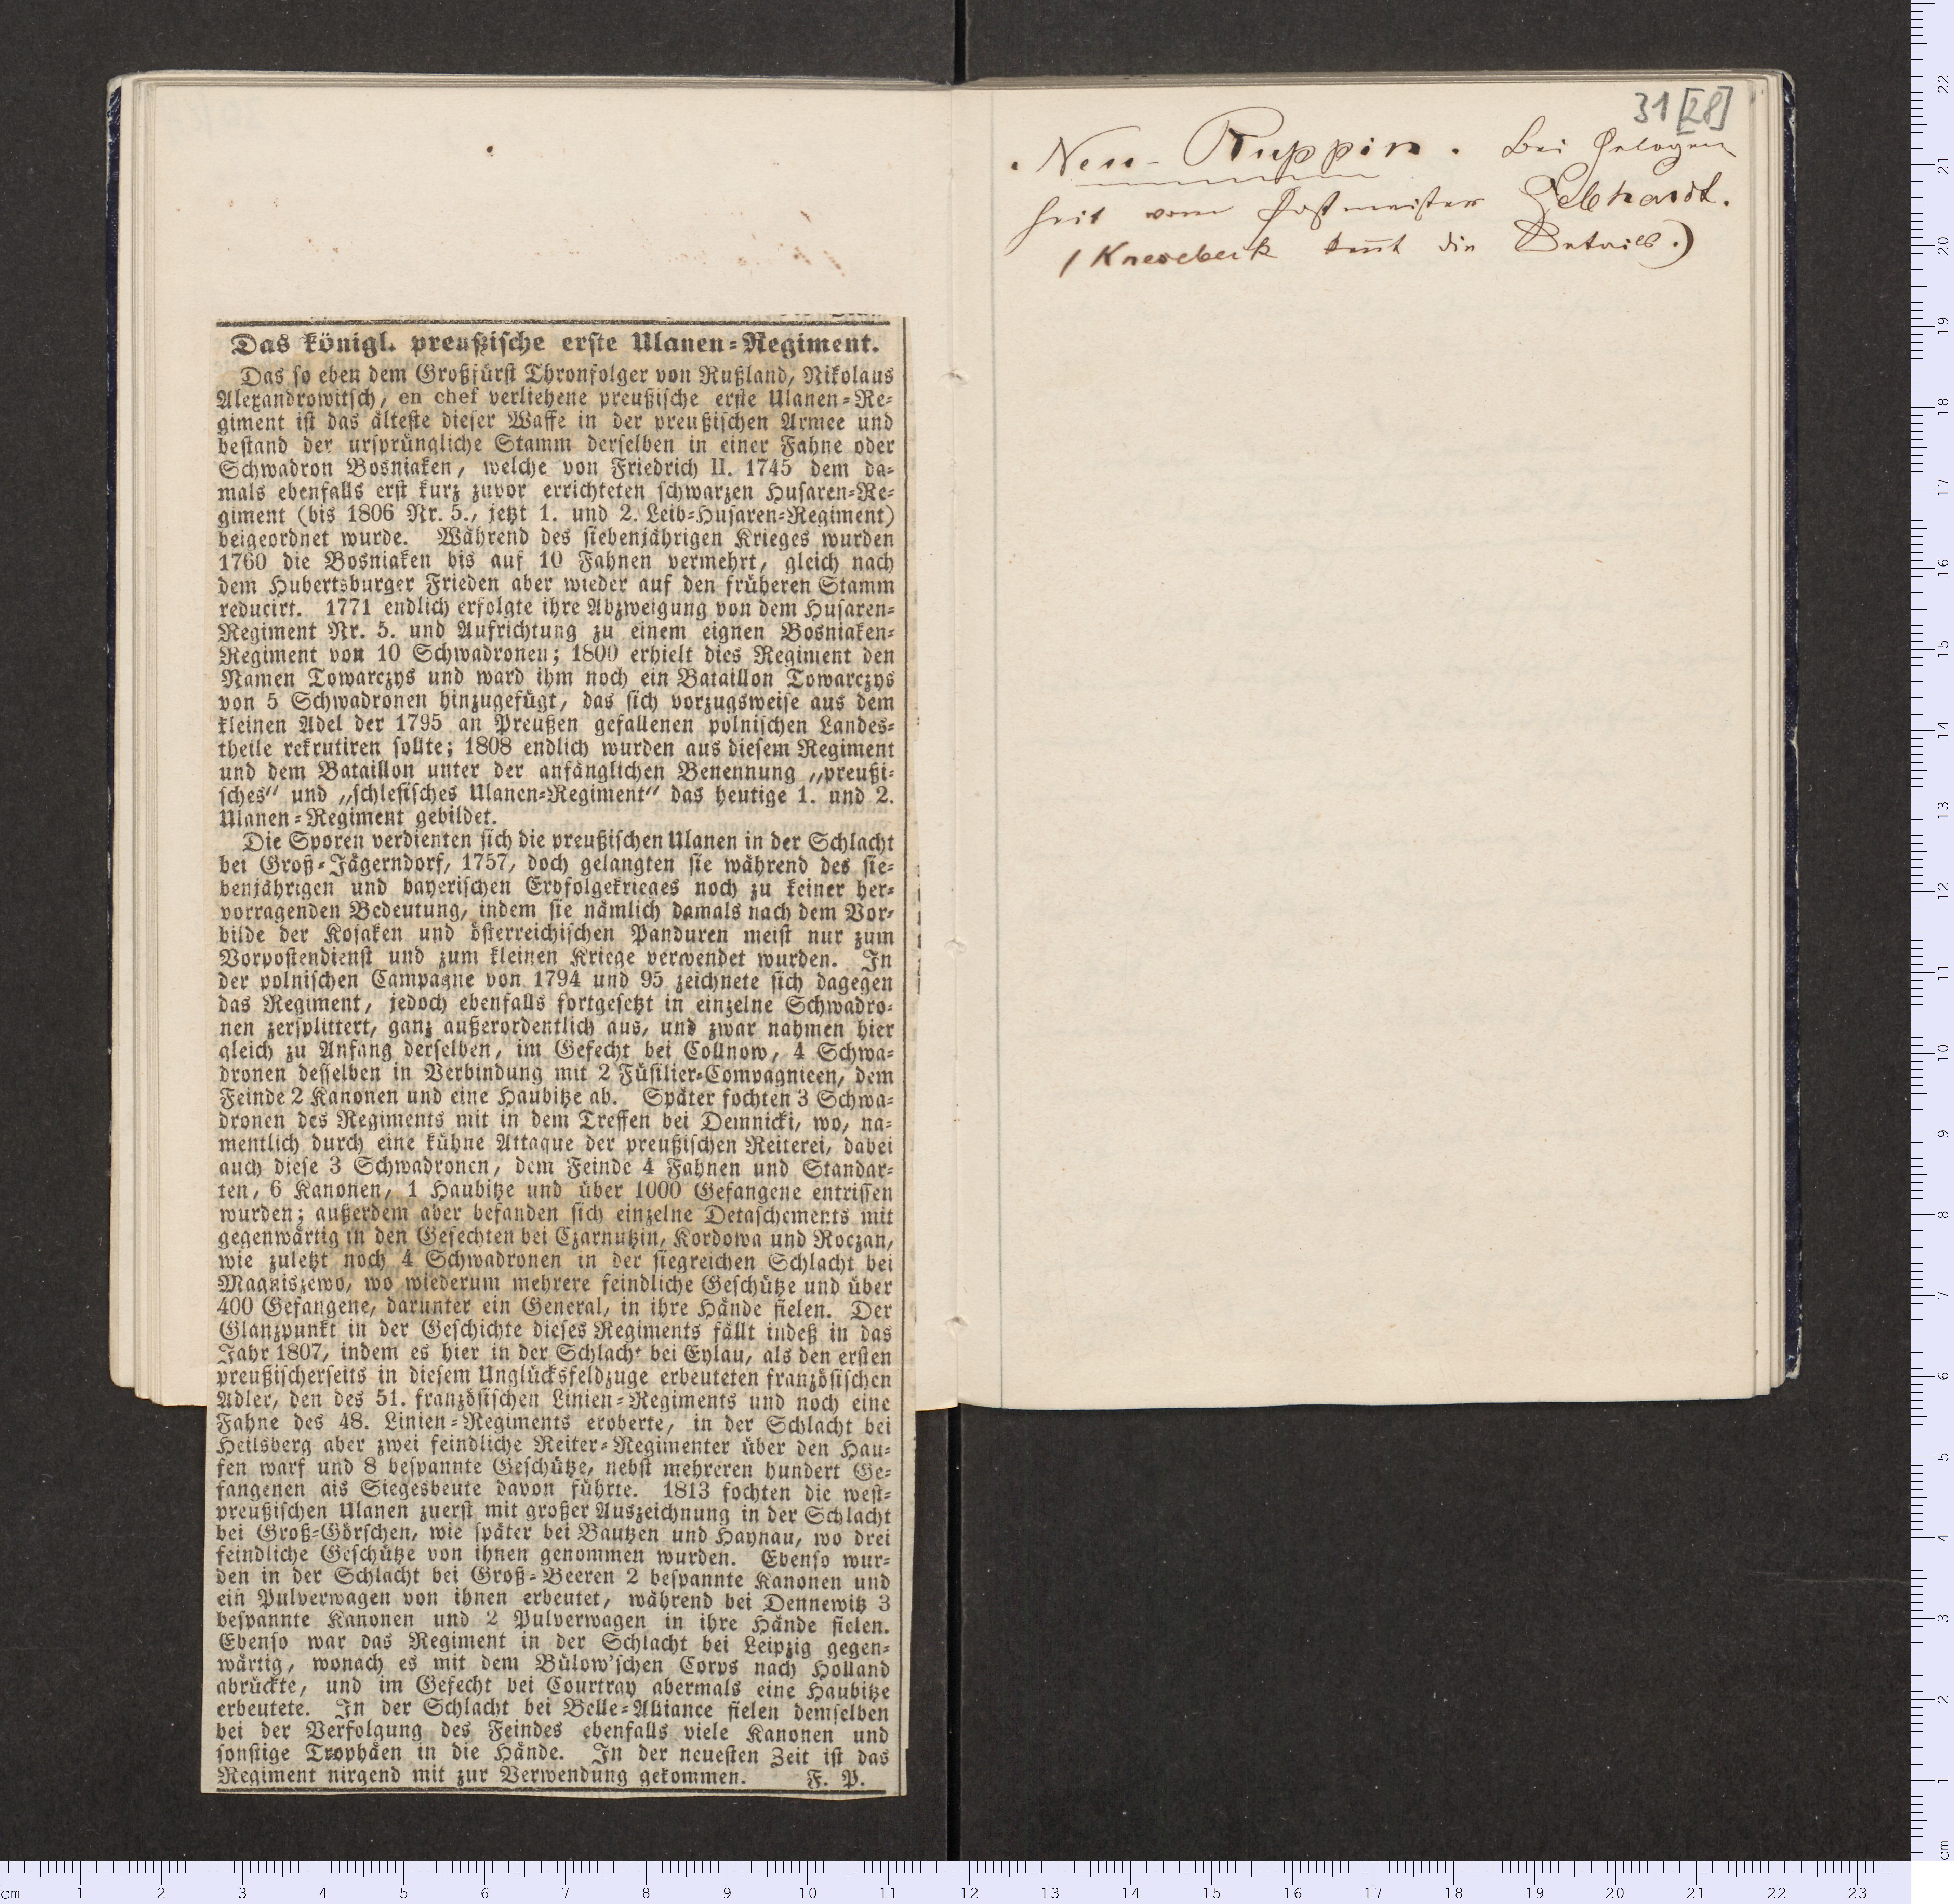 Das königl. preußische erste Ulanen-Regiment.
Das so eben dem Großfürst Thronfolger von Rußland, Nikolaus
Alexandrowitsch, en chef verliehene preußische erste Ulanen-Re-
giment ist das älteste dieser Waffe in der preußischen Armee und
bestand der ursprüngliche Stamm derselben in einer Fahne oder
Schwadron Bosniaken, welche von Friedrich II. 1745 dem da-
mals ebenfalls erst kurz zuvor errichteten schwarzen Husaren-Re-
giment (bis 1806 Nr. 5., jetzt 1. und 2. Leib-Husaren-Regiment)
beigeordnet wurde. Während des siebenjährigen Krieges wurden
1760 die Bosniaken bis auf 10 Fahnen vermehrt, gleich nach
dem Hubertsburger Frieden aber wieder auf den früheren Stamm
reducirt. 1771 endlich erfolgte ihre Abzweigung von dem Husaren-
Regiment Nr. 5. und Aufrichtung zu einem eignen Bosniaken-
Regiment von 10 Schwadronen; 1800 erhielt dies Regiment den
Namen Towarczys und ward ihm noch ein Bataillon Towarczys
von 5 Schwadronen hinzugefügt, das sich vorzugsweise aus dem
kleinen Adel der 1795 an Preußen gefallenen polnischen Landes-
theile rekrutiren sollte; 1808 endlich wurden aus diesem Regiment
und dem Bataillon unter der anfänglichen Benennung „preußi-
sches“ und „schlesisches Ulanen-Regiment“ das heutige 1. und 2.
Ulanen-Regiment gebildet.
Die Sporen verdienten sich die preußischen Ulanen in der Schlacht
bei Groß-Jägerndorf, 1757, doch gelangten sie während des sie-
benjährigen und bayerischen Erbfolgekrieges noch zu keiner her-
vorragenden Bedeutung, indem sie nämlich damals nach dem Vor-
bilde der Kosaken und österreichischen Panduren meist nur zum
Vorpostendienst und zum kleinen Kriege verwendet wurden. In
der polnischen Campagne von 1794 und 95 zeichnete sich dagegen
das Regiment, jedoch ebenfalls fortgesetzt in einzelne Schwadro-
nen zersplittert, ganz außerordentlich aus, und zwar nahmen hier
gleich zu Anfang derselben, im Gefecht bei Collnow, 4 Schwa-
dronen desselben in Verbindung mit 2 Füsilier-Compagnieen, dem
Feinde 2 Kanonen und eine Haubitze ab. Später fochten 3 Schwa-
dronen des Regiments mit in dem Treffen bei Demnicki, wo, na-
mentlich durch eine kühne Attaque der preußischen Reiterei, dabei
auch diese 3 Schwadronen, dem Feinde 4 Fahnen und Standar-
ten, 6 Kanonen, 1 Haubitze und über 1000 Gefangene entrissen
wurden; außerdem aber befanden sich einzelne Detaschements mit
gegenwärtig in den Gefechten bei Czarnutzin, Kordowa und Roczan,
wie zuletzt noch 4 Schwadronen in der siegreichen Schlacht bei
Magniszewo, wo wiederum mehrere feindliche Geschütze und über
400 Gefangene, darunter ein General, in ihre Hände fielen. Der
Glanzpunkt in der Geschichte dieses Regiments fällt indeß in das
Jahr 1807, indem es hier in der Schlacht bei Eylau, als den ersten
preußischerseits in diesem Unglücksfeldzuge erbeuteten französischen
Adler, den des 51. französischen Linien-Regiments und noch eine
Fahne des 48. Linien-Regiments eroberte, in der Schlacht bei
Heilsberg aber zwei feindliche Reiter-Regimenter über den Hau-
fen warf und 8 bespannte Geschütze, nebst mehreren hundert Ge-
fangenen als Siegesbeute davon führte. 1813 fochten die west-
preußischen Ulanen zuerst mit großer Auszeichnung in der Schlacht
bei Groß-Görschen, wie später bei Bautzen und Haynau, wo drei
feindliche Geschütze von ihnen genommen wurden. Ebenso wur-
den in der Schlacht bei Groß-Beeren 2 bespannte Kanonen und
ein Pulverwagen von ihnen erbeutet, während bei Dennewitz 3
bespannte Kanonen und 2 Pulverwagen in ihre Hände fielen.
Ebenso war das Regiment in der Schlacht bei Leipzig gegen-
wärtig, wonach es mit dem Bülow'schen Corps nach Holland
abrückte, und im Gefecht bei Courtray abermals eine Haubitze
erbeutete. In der Schlacht bei Belle-Alliance fielen demselben
bei der Verfolgung des Feindes ebenfalls viele Kanonen und
sonstige Trophäen in die Hände. In der neuesten Zeit ist das
Regiment nirgend mit zur Verwendung gekommen. F. P.
31 [28]
Neu-Ruppin. Bei Gelegen
heit vom Postmeister Gebhardt.
(Knesebeck kent die Details.)